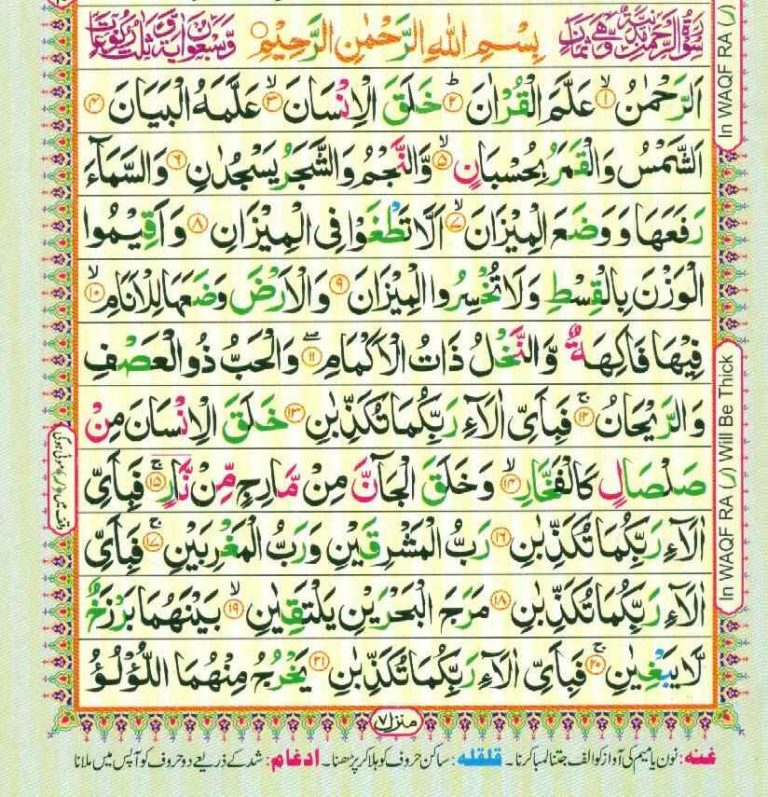 سُوْرَةُ الرَّحْمٰنِ مَدَنِيَّةٌ وَّهِيَ ثَمَانٌ بِسْمِ اللهِ الرَّحْمٰنِ الرَّحِيْمِ وَّسَبْعُوْنَ اٰيَةً وَّثَلٰثُ رُكُوْعَاتٍ
اَلرَّحْمٰنُ ۙ﴿۱﴾ عَلَّمَ الْقُرْاٰنَ ؕ﴿۲﴾ خَلَقَ الْاِنْسَانَ ۙ﴿۳﴾ عَلَّمَهُ الْبَيَانَ ﴿۴﴾
اَلشَّمْسُ وَالْقَمَرُ بِحُسْبَانٍ ۙ﴿۵﴾ وَّالنَّجْمُ وَالشَّجَرُ يَسْجُدٰنِ ﴿۶﴾ وَالسَّمَآءَ
رَفَعَهَا وَوَضَعَ الْمِيْزَانَ ۙ﴿۷﴾ اَلَّا تَطْغَوْا فِى الْمِيْزَانِ ﴿۸﴾ وَاَقِيْمُوا
الْوَزْنَ بِالْقِسْطِ وَلَا تُخْسِرُوا الْمِيْزَانَ ﴿۹﴾ وَالْاَرْضَ وَضَعَهَا لِلْاَنَامِ ۙ﴿۱۰﴾
فِيْهَا فَاكِهَةٌ وَّالنَّخْلُ ذَاتُ الْاَكْمَامِ ۖ﴿۱۱﴾ وَالْحَبُّ ذُو الْعَصْفِ
وَالرَّيْحَانُ ۚ﴿۱۲﴾ فَبِاَىِّ اٰلَآءِ رَبِّكُمَا تُكَذِّبٰنِ ﴿۱۳﴾ خَلَقَ الْاِنْسَانَ مِنْ
صَلْصَالٍ كَالْفَخَّارِ ۙ﴿۱۴﴾ وَخَلَقَ الْجَآنَّ مِنْ مَّارِجٍ مِّنْ نَّارٍ ۚ﴿۱۵﴾ فَبِاَىِّ
اٰلَآءِ رَبِّكُمَا تُكَذِّبٰنِ ﴿۱۶﴾ رَبُّ الْمَشْرِقَيْنِ وَرَبُّ الْمَغْرِبَيْنِ ۚ﴿۱۷﴾ فَبِاَىِّ
اٰلَآءِ رَبِّكُمَا تُكَذِّبٰنِ ﴿۱۸﴾ مَرَجَ الْبَحْرَيْنِ يَلْتَقِيٰنِ ۙ﴿۱۹﴾ بَيْنَهُمَا بَرْزَخٌ
لَّا يَبْغِيٰنِ ۚ﴿۲۰﴾ فَبِاَىِّ اٰلَآءِ رَبِّكُمَا تُكَذِّبٰنِ ﴿۲۱﴾ يَخْرُجُ مِنْهُمَا اللُّؤْلُؤُ
منزل ۷
غنه: نون یا میم کی آواز کو الف جتنا لمبا کرنا۔ قلقله: ساکن حروف کو ہلا کر پڑھنا۔ ادغام: شد کے ذریعے دو حروف کو آپس میں ملانا
In WAQF RA (ر)
In WAQF RA (ر) Will Be Thick